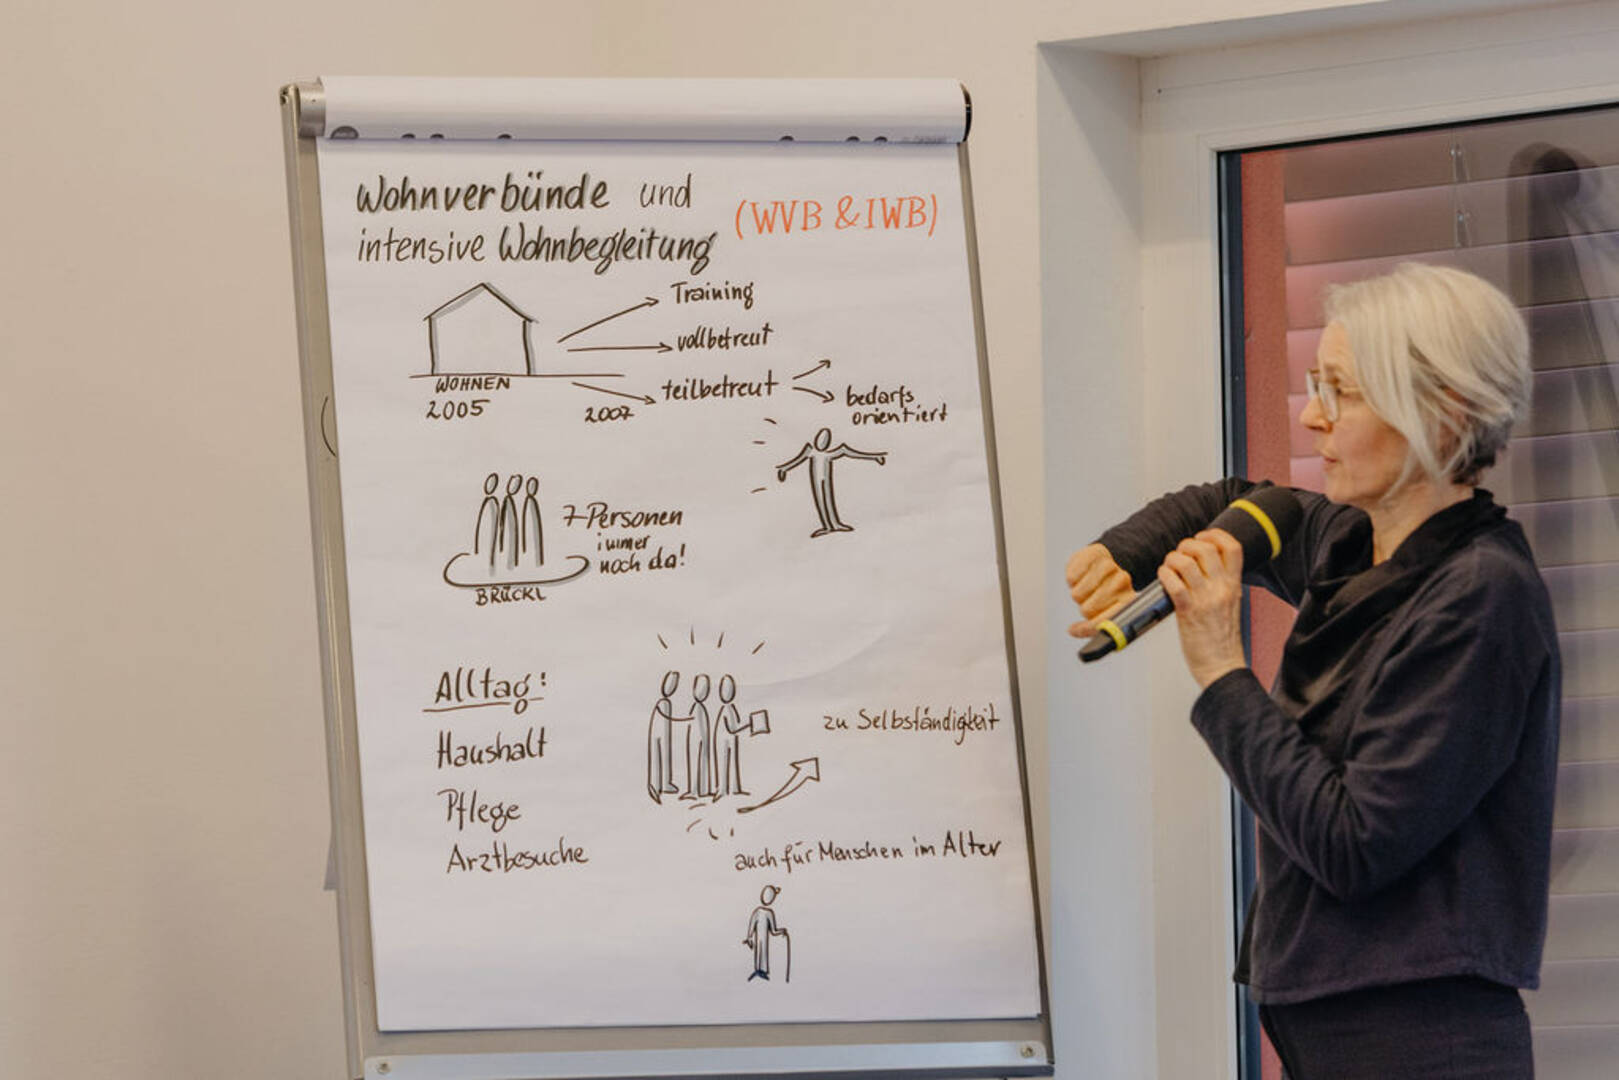 Wohnverbünde und
intensive Wohnbegleitung
(WVB & IWB)
Training
vollbetreut
teilbetreut
bedarfs
orientiert
WOHNEN
2005
2007
7 Personen
immer
noch da!
BRÜCKL
Alltag:
Haushalt
Pflege
Arztbesuche
zu Selbständigkeit
auch für Menschen im Alter